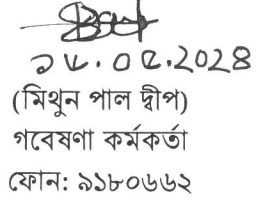 ১৮.০৫.২০২৪
(মিথুন পাল দ্বীপ)
গবেষণা কর্মকর্তা
ফোন: ৯১৮০৬৬২